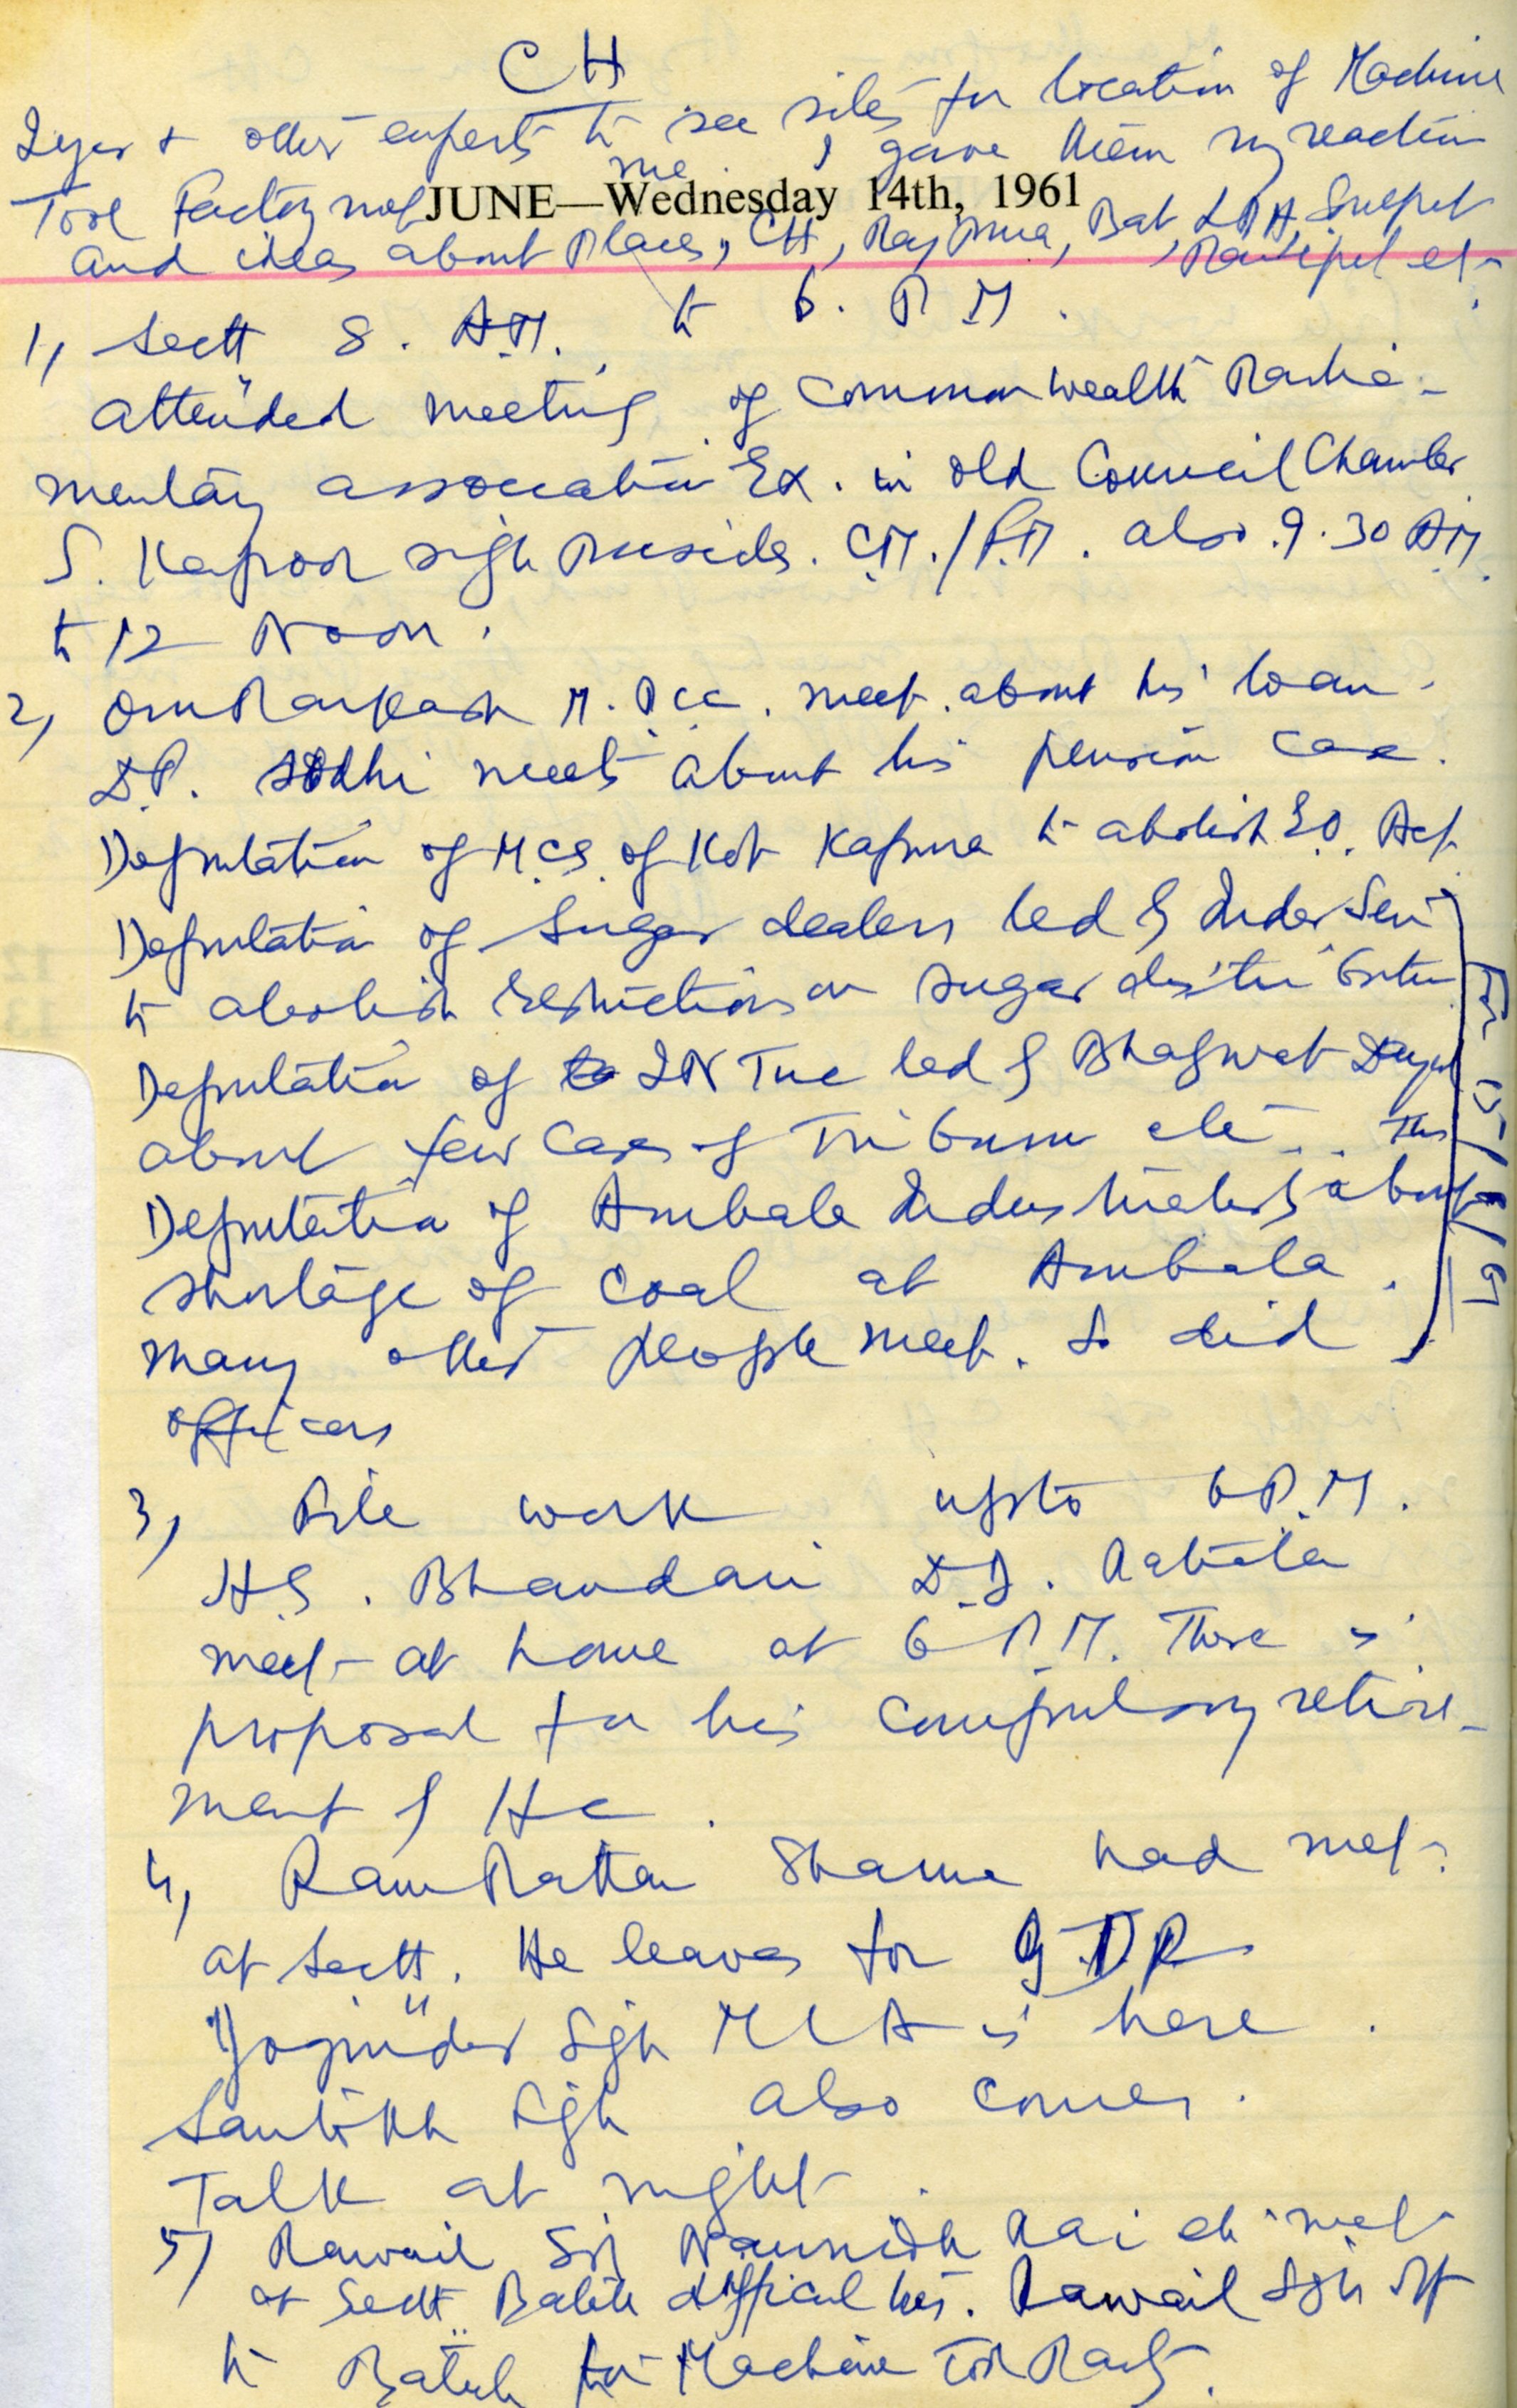 CH
Iyer & other experts to see sites for location of Machine
Tool Factory met me. I gave them my reaction
JUNE—Wednesday 14th, 1961
and ideas about places, CH, Rajpura, Bat, LDH,
1, Sectt 8. A.M. to 6. P.M.
attended meeting of Commonwealth Parlia-
mentary association Ex. in old Council Chamber
S. Kapoor Singh presides. C.M./P.M. also 9.30 A.M.
to 12 Noon.
2, Om Parkash M. P.C.C. meet about his loan.
D.P. Sodhi meets about his pension case.
Deputation of M.C.s of Kot Kapura to abolish E.O. Act
Deputation of Sugar dealers led by Inder Sen
to abolish restrictions on sugar distribution
Deputation of INTUC led by Bhagwat Dayal
about few cases of Tribune etc.
Deputation of Ambala Industrialists about
shortage of coal at Ambala.
many other people meet. So did
officers
For 15/6/61
3, File work upto 6 P.M.
H.S. Bhandari D.D. Patiala
meet at home at 6 P.M. There is
proposal for his compulsory retire-
ment by HC.
4, Ram Rattan Sharma had met
at Sectt. He leaves for GDR
Yoginder Sgh MLA is here.
Santokh Sgh also comes.
Talk at night.
5, Rawail Sgh Naunidh Rai etc met
at Sectt. Batala difficulties. Rawail Sgh off
to Batala for Machine Tool